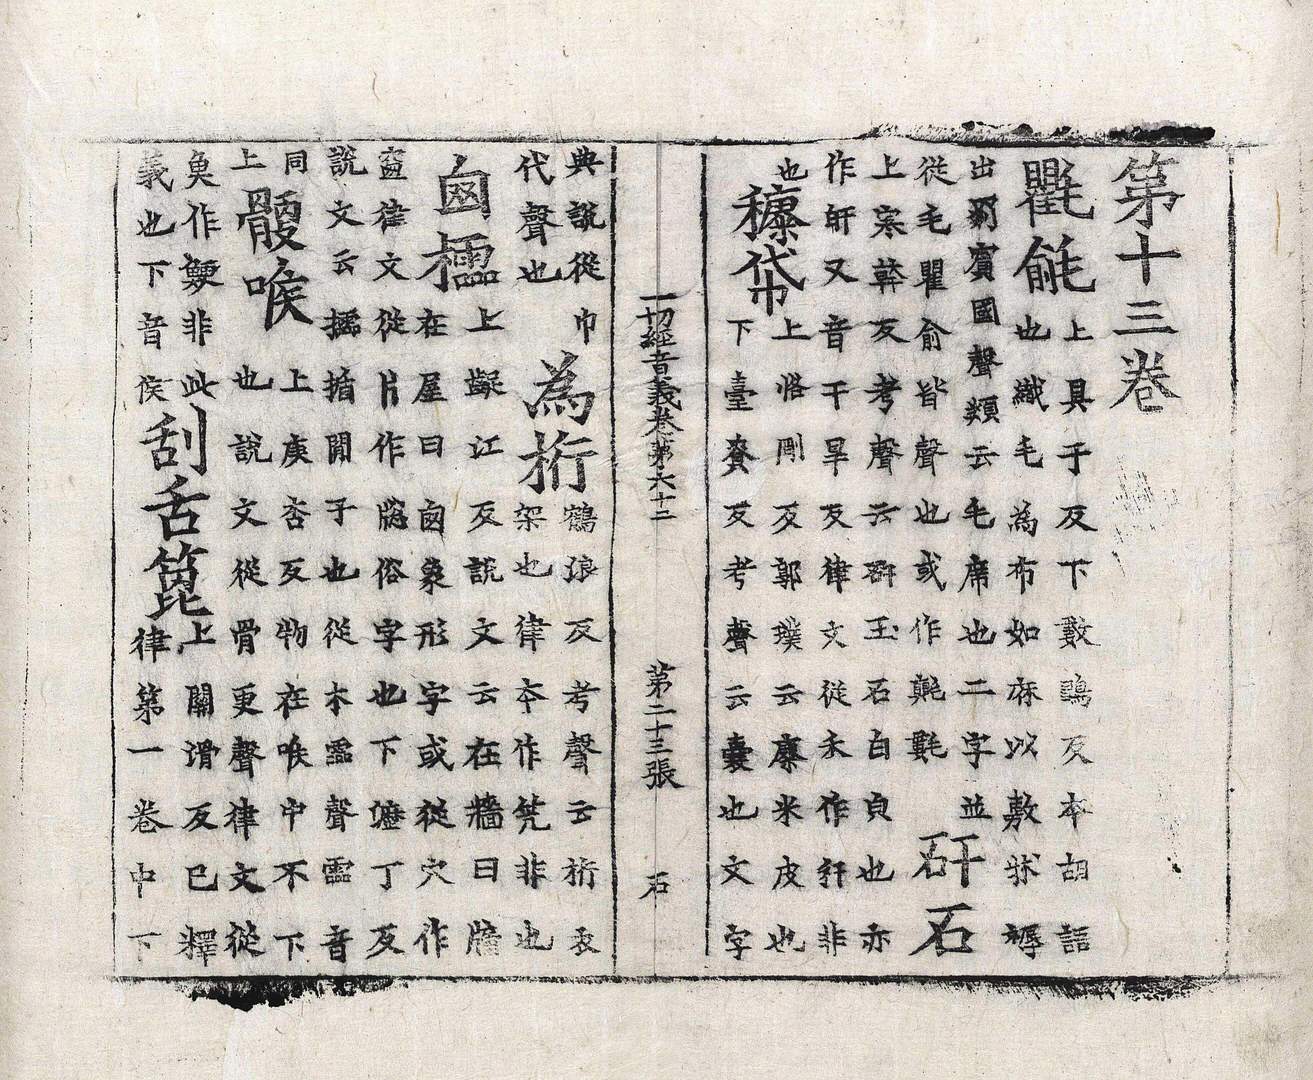 第十三卷
氍毹
上具于反下數鵶反本胡語
也織毛為布如麻以敷牀褥
出罽賓國聲類云毛席也二字並
從毛瞿俞皆聲也或作氀
矸石
上寒幹反考聲云矸玉石白皃也亦
作軒又音干旱反律文從禾作秆非
也
穅帒
上恪剛反郭璞云穅米皮也
下臺賚反考聲云囊也文字
一切經音義卷第六十二 第二十三張 石
典說從巾
代聲也
為桁
鶴浪反考聲云桁衣
架也律本作筅非也
囪櫺
上齪江反說文云在牆曰牖
在屋曰囪象形字或從穴作
窗律文從片作牕俗字也下歷丁反
說文云櫺楯閒子也從木霝聲霝音
同
上
骾喉
上庚杏反物在喉中不下
也說文從骨更聲律文從
魚作鯁非此
義也下音侯
刮舌篦
上關滑反已釋
律第一卷中下